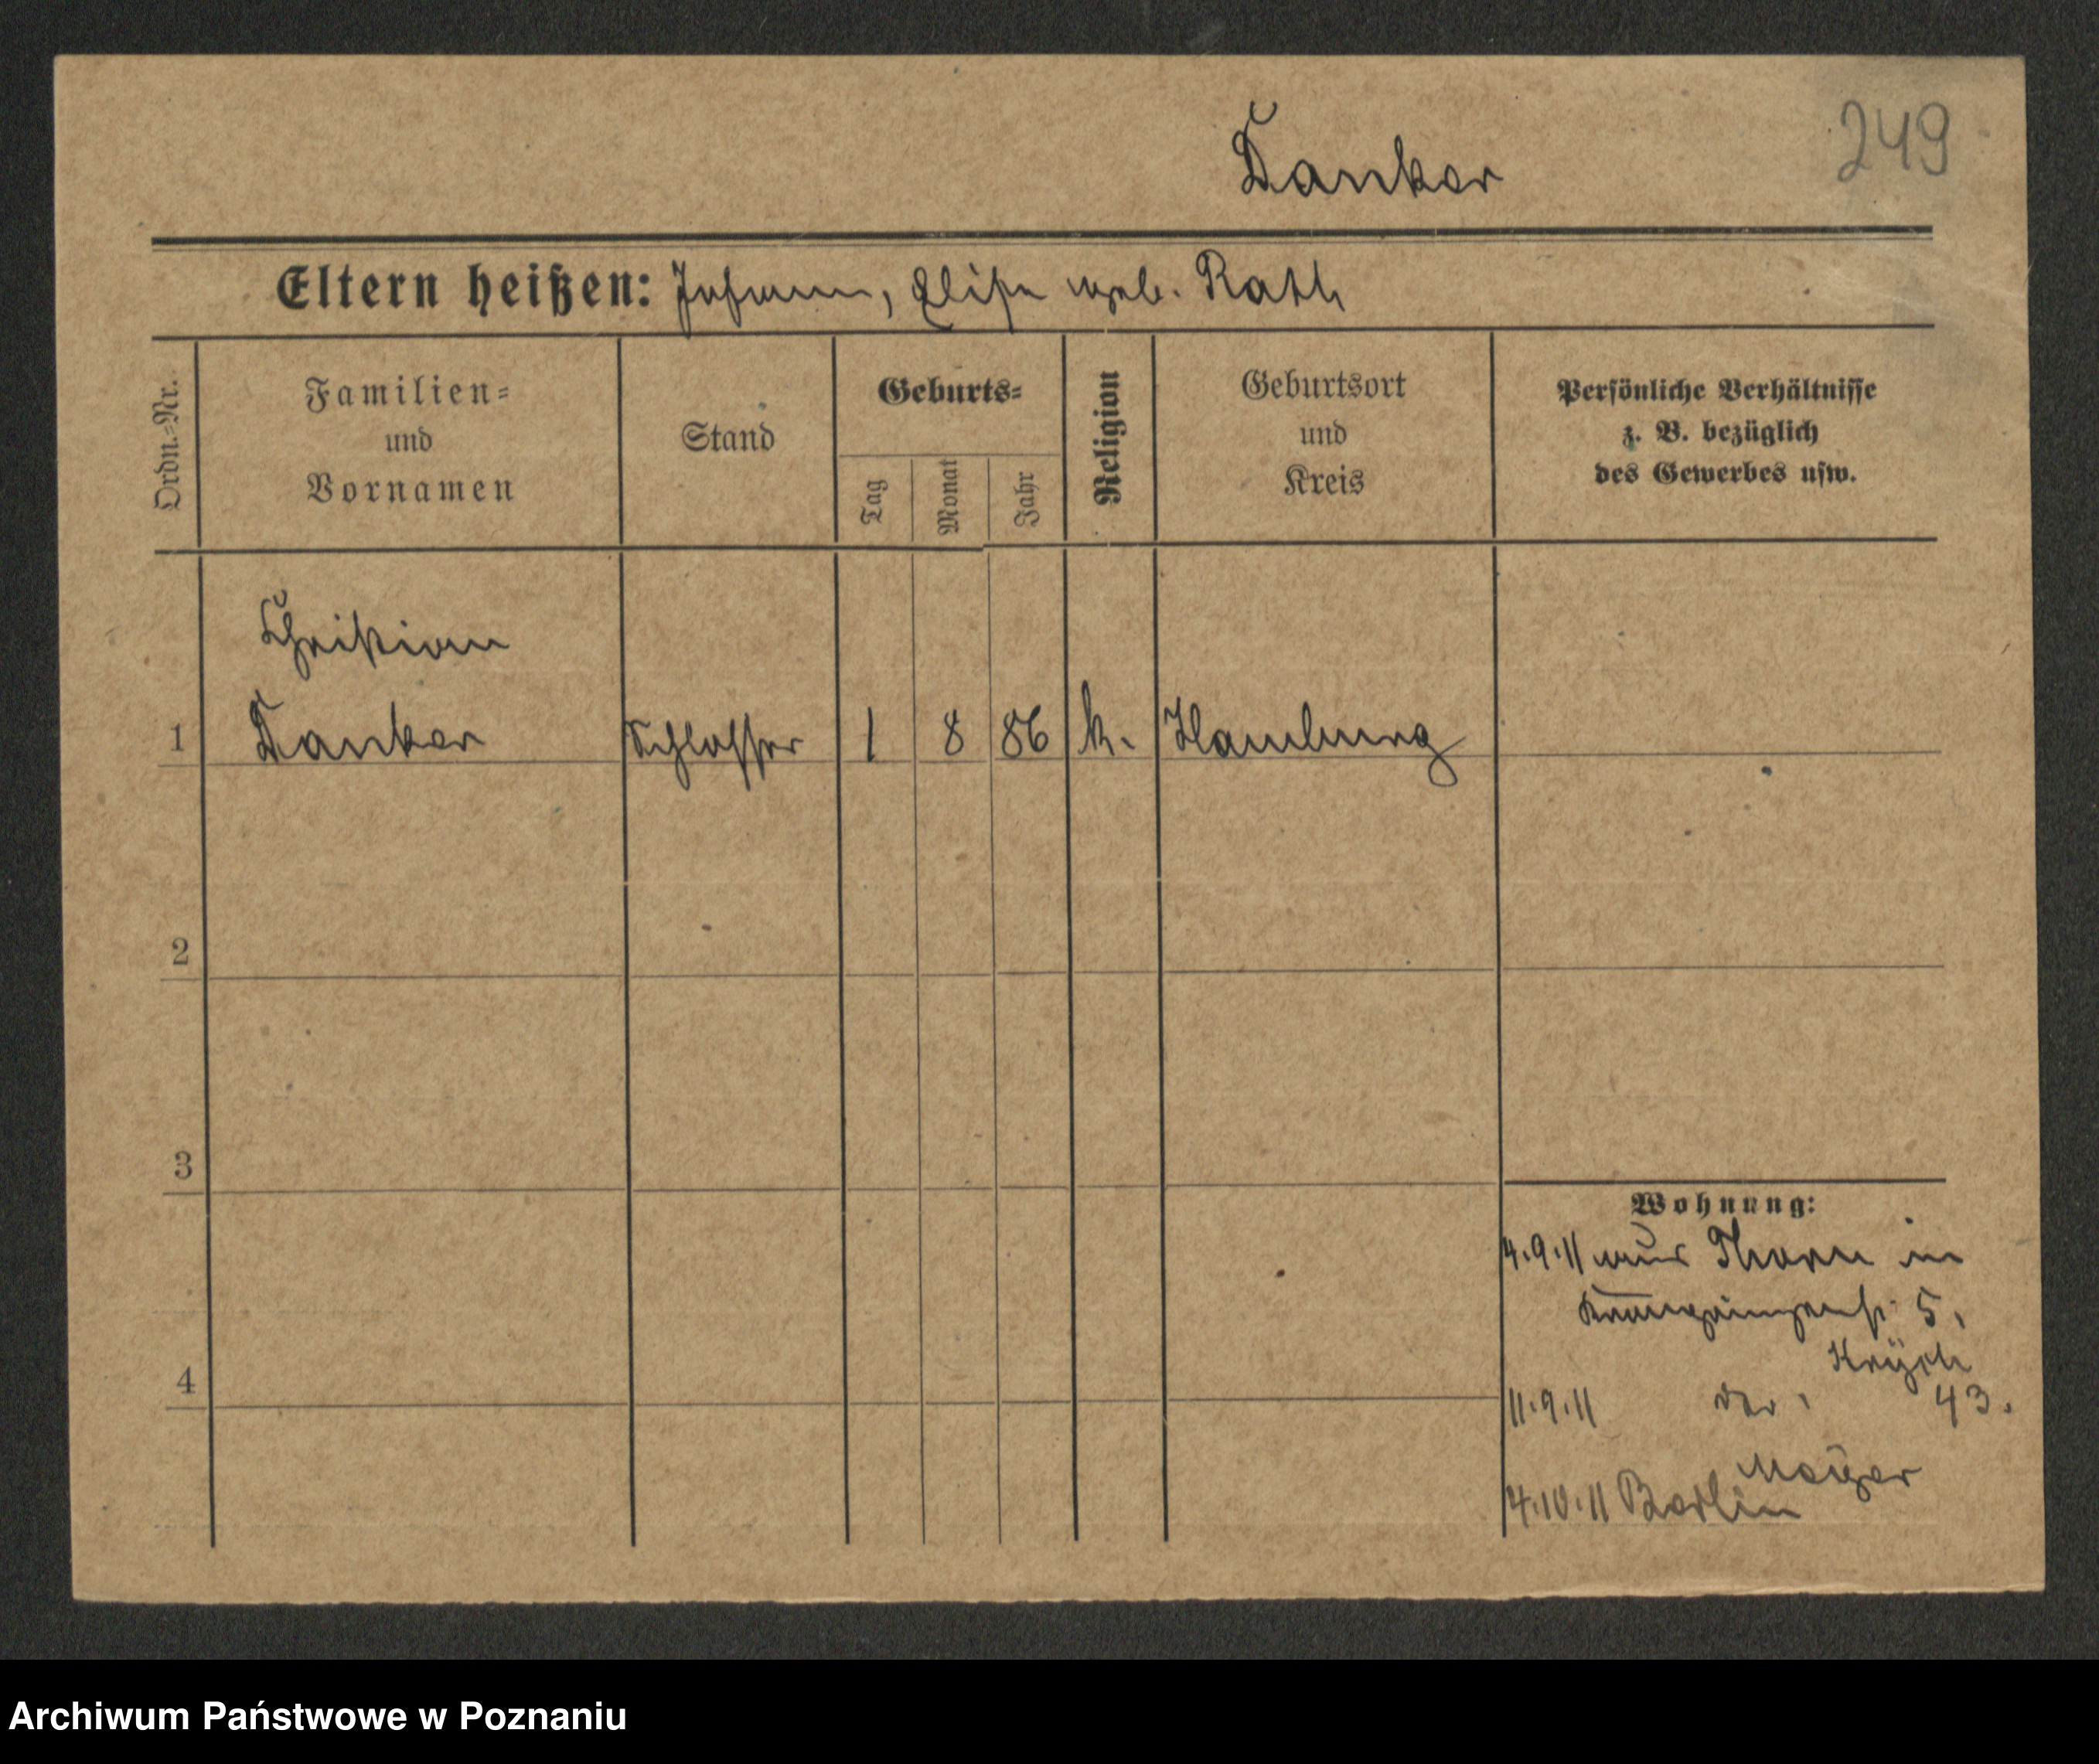 249
Danker
Eltern heißen: Johann, Elise geb. Rath
Ordn.=Nr.
Familien=
und
Vornamen
Stand
Geburts=
Tag
Monat
Jahr
Religion
Geburtsort
und
Kreis
Persönliche Verhältnisse
z. B. bezüglich
des Gewerbes usw.
Christian
1 Danker Schlosser 1 8 86 k. Hamburg
2
3
4
Wohnung:
4.9.11 aus Thorn in
5,
11.9.11 43.
4.10.11 Berlin
Archiwum Państwowe w Poznaniu